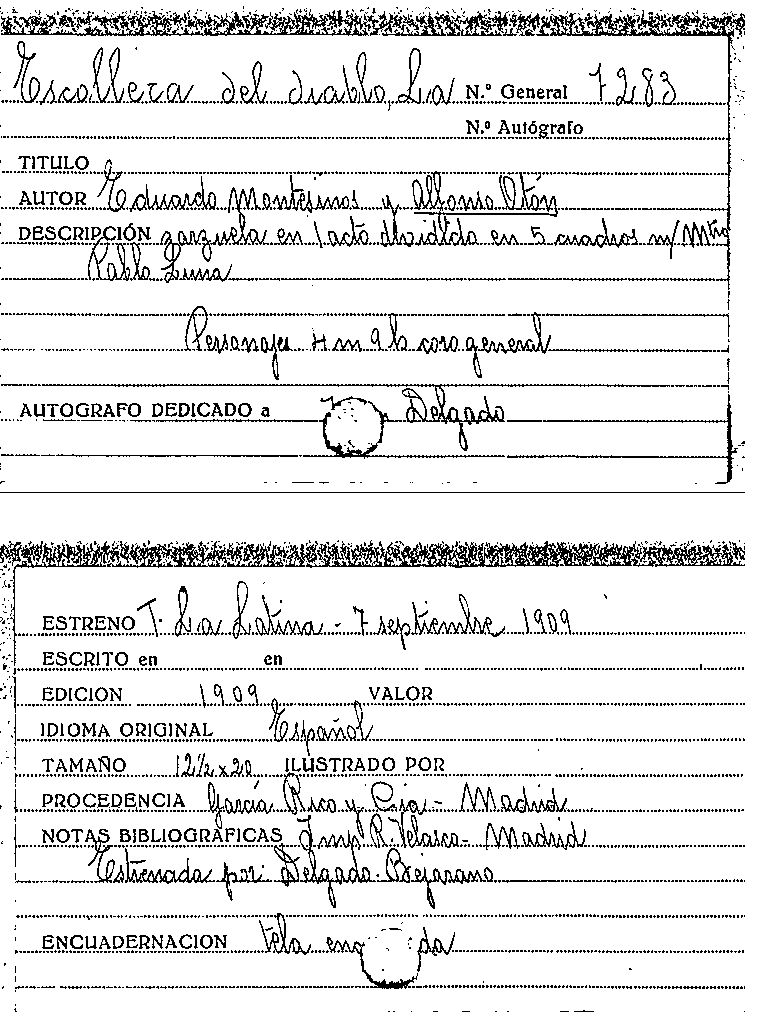 Escollera del diablo, La N.º General 7283
N.º Autógrafo
TITULO
AUTOR Eduardo Montesinos y Alfonso Otón
DESCRIPCIÓN zarzuela en 1 acto dividido en 5 cuadros m/ Mtro
Pablo Luna
Personajes 4 m 9 h coro general
AUTOGRAFO DEDICADO a Delgado
ESTRENO T. La Latina - 7 septiembre 1909
ESCRITO en en
EDICION 1909 VALOR
IDIOMA ORIGINAL Español
TAMAÑO 12½ x 20 ILUSTRADO POR
PROCEDENCIA García Rico y Cia - Madrid
NOTAS BIBLIOGRAFICAS Impº R. Velasco - Madrid
Estrenada por: Delgado - Bejarano
ENCUADERNACION tela